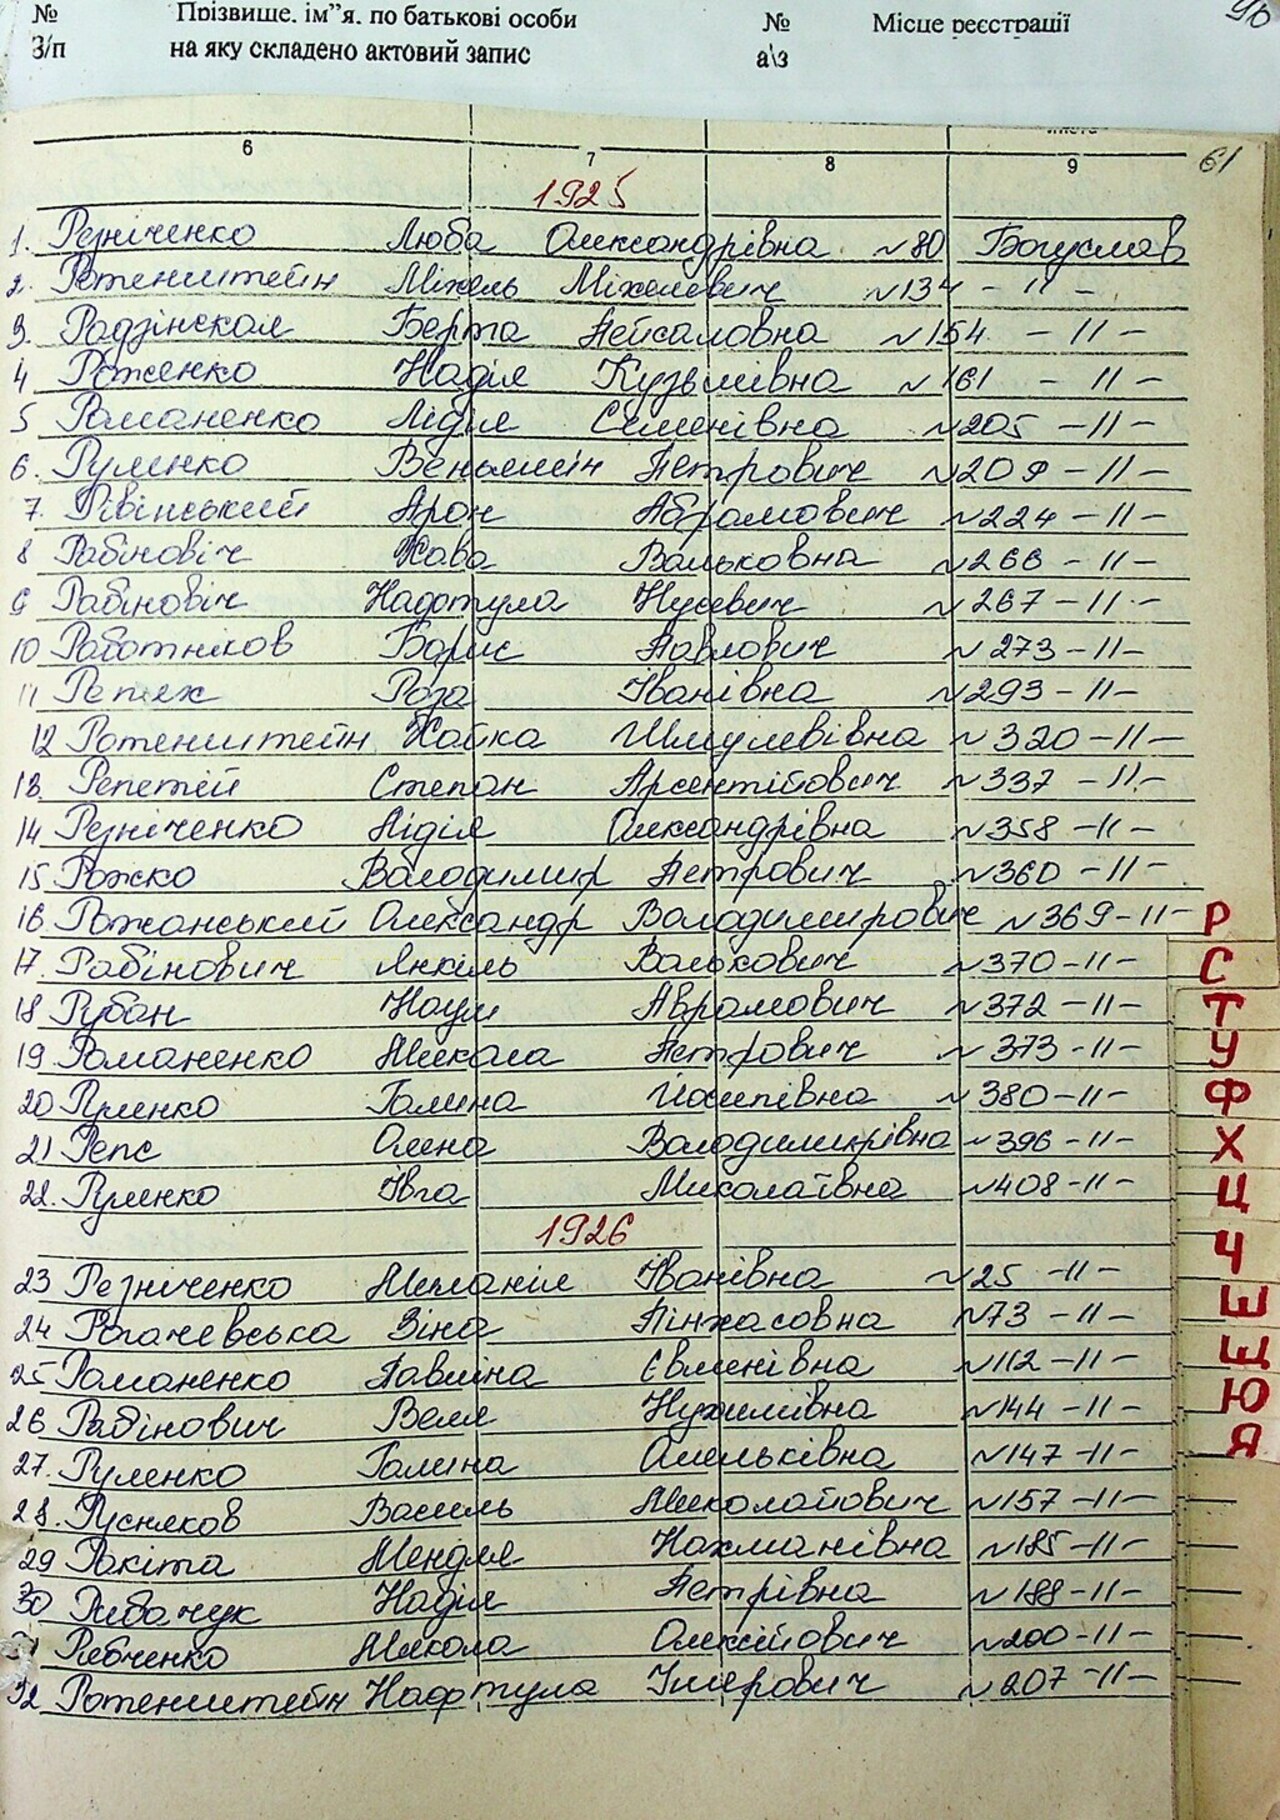 № Прізвище, ім”я, по батькові особи № Місце реєстрації 96
З/п на яку складено актовий запис а\з
листа
6 7 8 9 61
1925
1. Резніченко Люба Олександрівна №80 Богуслав
2. Ротенштейн Міхель Міхелевич №134 - 11 -
3. Радзінская Берта Пейсаловна №154 - 11 -
4 Роженко Надія Кузьмівна №161 - 11 -
5 Романенко Лідія Семенівна №205 - 11 -
6. Руленко Веньямін Петрович №209 - 11 -
7. Рівінський Арон Абрамович №224 - 11 -
8 Рабіновіч Хава Вальковна №266 - 11 -
9 Рабіновіч Нафтула Нусевич №267 - 11 -
10 Работніков Борис Павлович №273 - 11 -
11 Репях Роза Іванівна №293 - 11 -
12 Ротенштейн Хайка Шмулевівна №320 - 11 -
13. Репетій Степан Арсентійович №337 - 11 -
14 Резніченко Лідія Олександрівна №358 - 11 -
15 Рожко Володимир Петрович №360 - 11 -
16 Рожанський Олександр Володимирович №369 - 11 - Р
17. Рабінович Янкіль Валькович №370 - 11 - С
18 Рубан Наум Аврамович №372 - 11 - Т
19 Романенко Микола Петрович №373 - 11 - У
20 Руленко Галина Йосипівна №380 - 11 - Ф
21 Репс Олена Володимирівна №396 - 11 - Х
22. Руленко Івга Миколаївна №408 - 11 - Ц
1926 Ч
23 Резніченко Меланія Іванівна №25 - 11 -
24 Рогачевська Зіна Пінхасовна №73 - 11 - Ш
25 Романенко Павліна Євменівна №112 - 11 - Щ
26 Рабінович Веля Нухимівна №144 - 11 - Ю
27. Руленко Галина Омельківна №147 - 11 - Я
28. Русняков Василь Миколайович №157 - 11 -
29 Ракіта Мендля Нахманівна №185 - 11 -
30 Рибачук Надія Петрівна №188 - 11 -
31 Рябченко Микола Олексійович №200 - 11 -
32 Ротенштейн Нафтула Іцерович №207 - 11 -